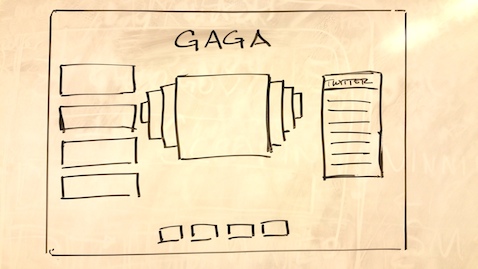 GAGA
TWITTER